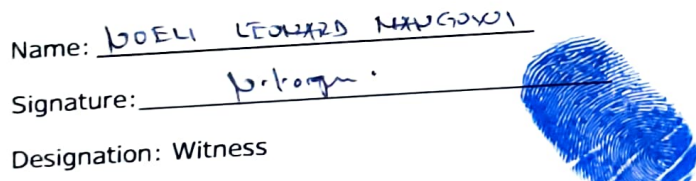 Name: NOELI LEONARD
Signature:
Designation: Witness